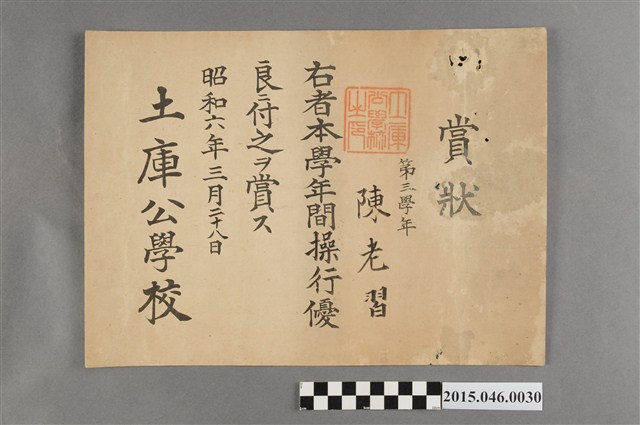 賞狀
第三學年
陳老習
右者本學年間操行優
良ニ付之ヲ賞ス
昭和六年三月二十八日
土庫公學校
土庫公學校之印
2015.046.0030